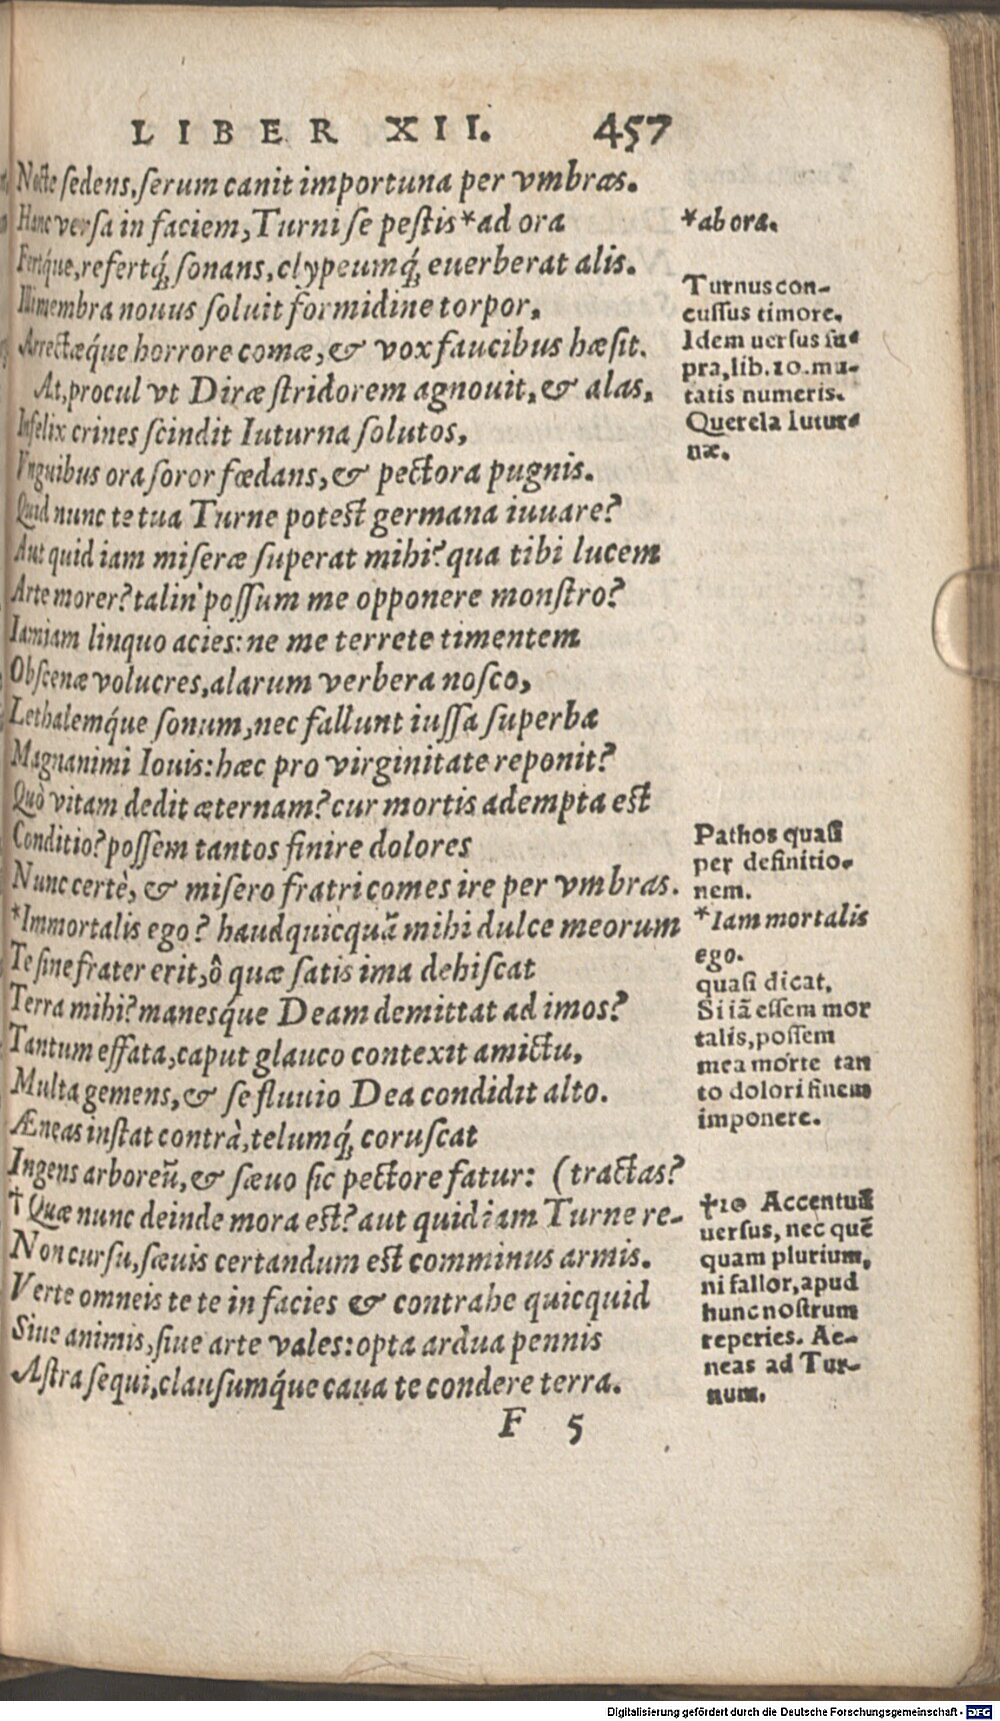 LIBER XII. 457
Nocte sedens, serum canit importuna per vmbras.
Hanc versa in faciem, Turni se pestis *ad ora
Fertq́ue, refertq́; sonans, clypeumq́; euerberat alis.
Illi membra nouus soluit formidine torpor,
Arrectæq́ue horrore comæ, & vox faucibus hæsit.
At, procul vt Diræ stridorem agnouit, & alas,
Infelix crines scindit Iuturna solutos,
Vnguibus ora soror fœdans, & pectora pugnis.
Quid nunc te tua Turne potest germana iuuare?
Aut quid iam miseræ superat mihi? qua tibi lucem
Arte morer? talin' possum me opponere monstro?
Iamiam linquo acies: ne me terrete timentem
Obscenæ volucres, alarum verbera nosco,
Lethalemq́ue sonum, nec fallunt iussa superba
Magnanimi Iouis: hæc pro virginitate reponit?
Quò vitam dedit æternam? cur mortis adempta est
Conditio? possem tantos finire dolores
Nunc certè, & misero fratri comes ire per vmbras.
*Immortalis ego? haud quicquā mihi dulce meorum
Te sine frater erit, ô quæ satis ima dehiscat
Terra mihi? manesq́ue Deam demittat ad imos?
Tantum effata, caput glauco contexit amictu,
Multa gemens, & se fluuio Dea condidit alto.
Æneas instat contrà, telumq́; coruscat
Ingens arboreū, & sæuo sic pectore fatur: (tractas?
† Quæ nunc deinde mora est? aut quid iam Turne re-
Non cursu, sæuis certandum est comminus armis.
Verte omneis te te in facies & contrahe quicquid
Siue animis, siue arte vales: opta ardua pennis
Astra sequi, clausumq́ue caua te condere terra.
F 5
*ab ora.
Turnus con-
cussus timore.
Idem uersus su-
pra, lib. 10. mu-
tatis numeris.
Querela Iutur-
næ.
Pathos quasi
per definitio-
nem.
*Iam mortalis
ego.
quasi dicat,
Si iā essem mor
talis, possem
mea morte tan
to dolori finem
imponere.
†10 Accentuū
uersus, nec quē
quam plurium,
ni fallor, apud
hunc nostrum
reperies. Ae-
neas ad Tur-
num.
Digitalisierung gefördert durch die Deutsche Forschungsgemeinschaft - DFG